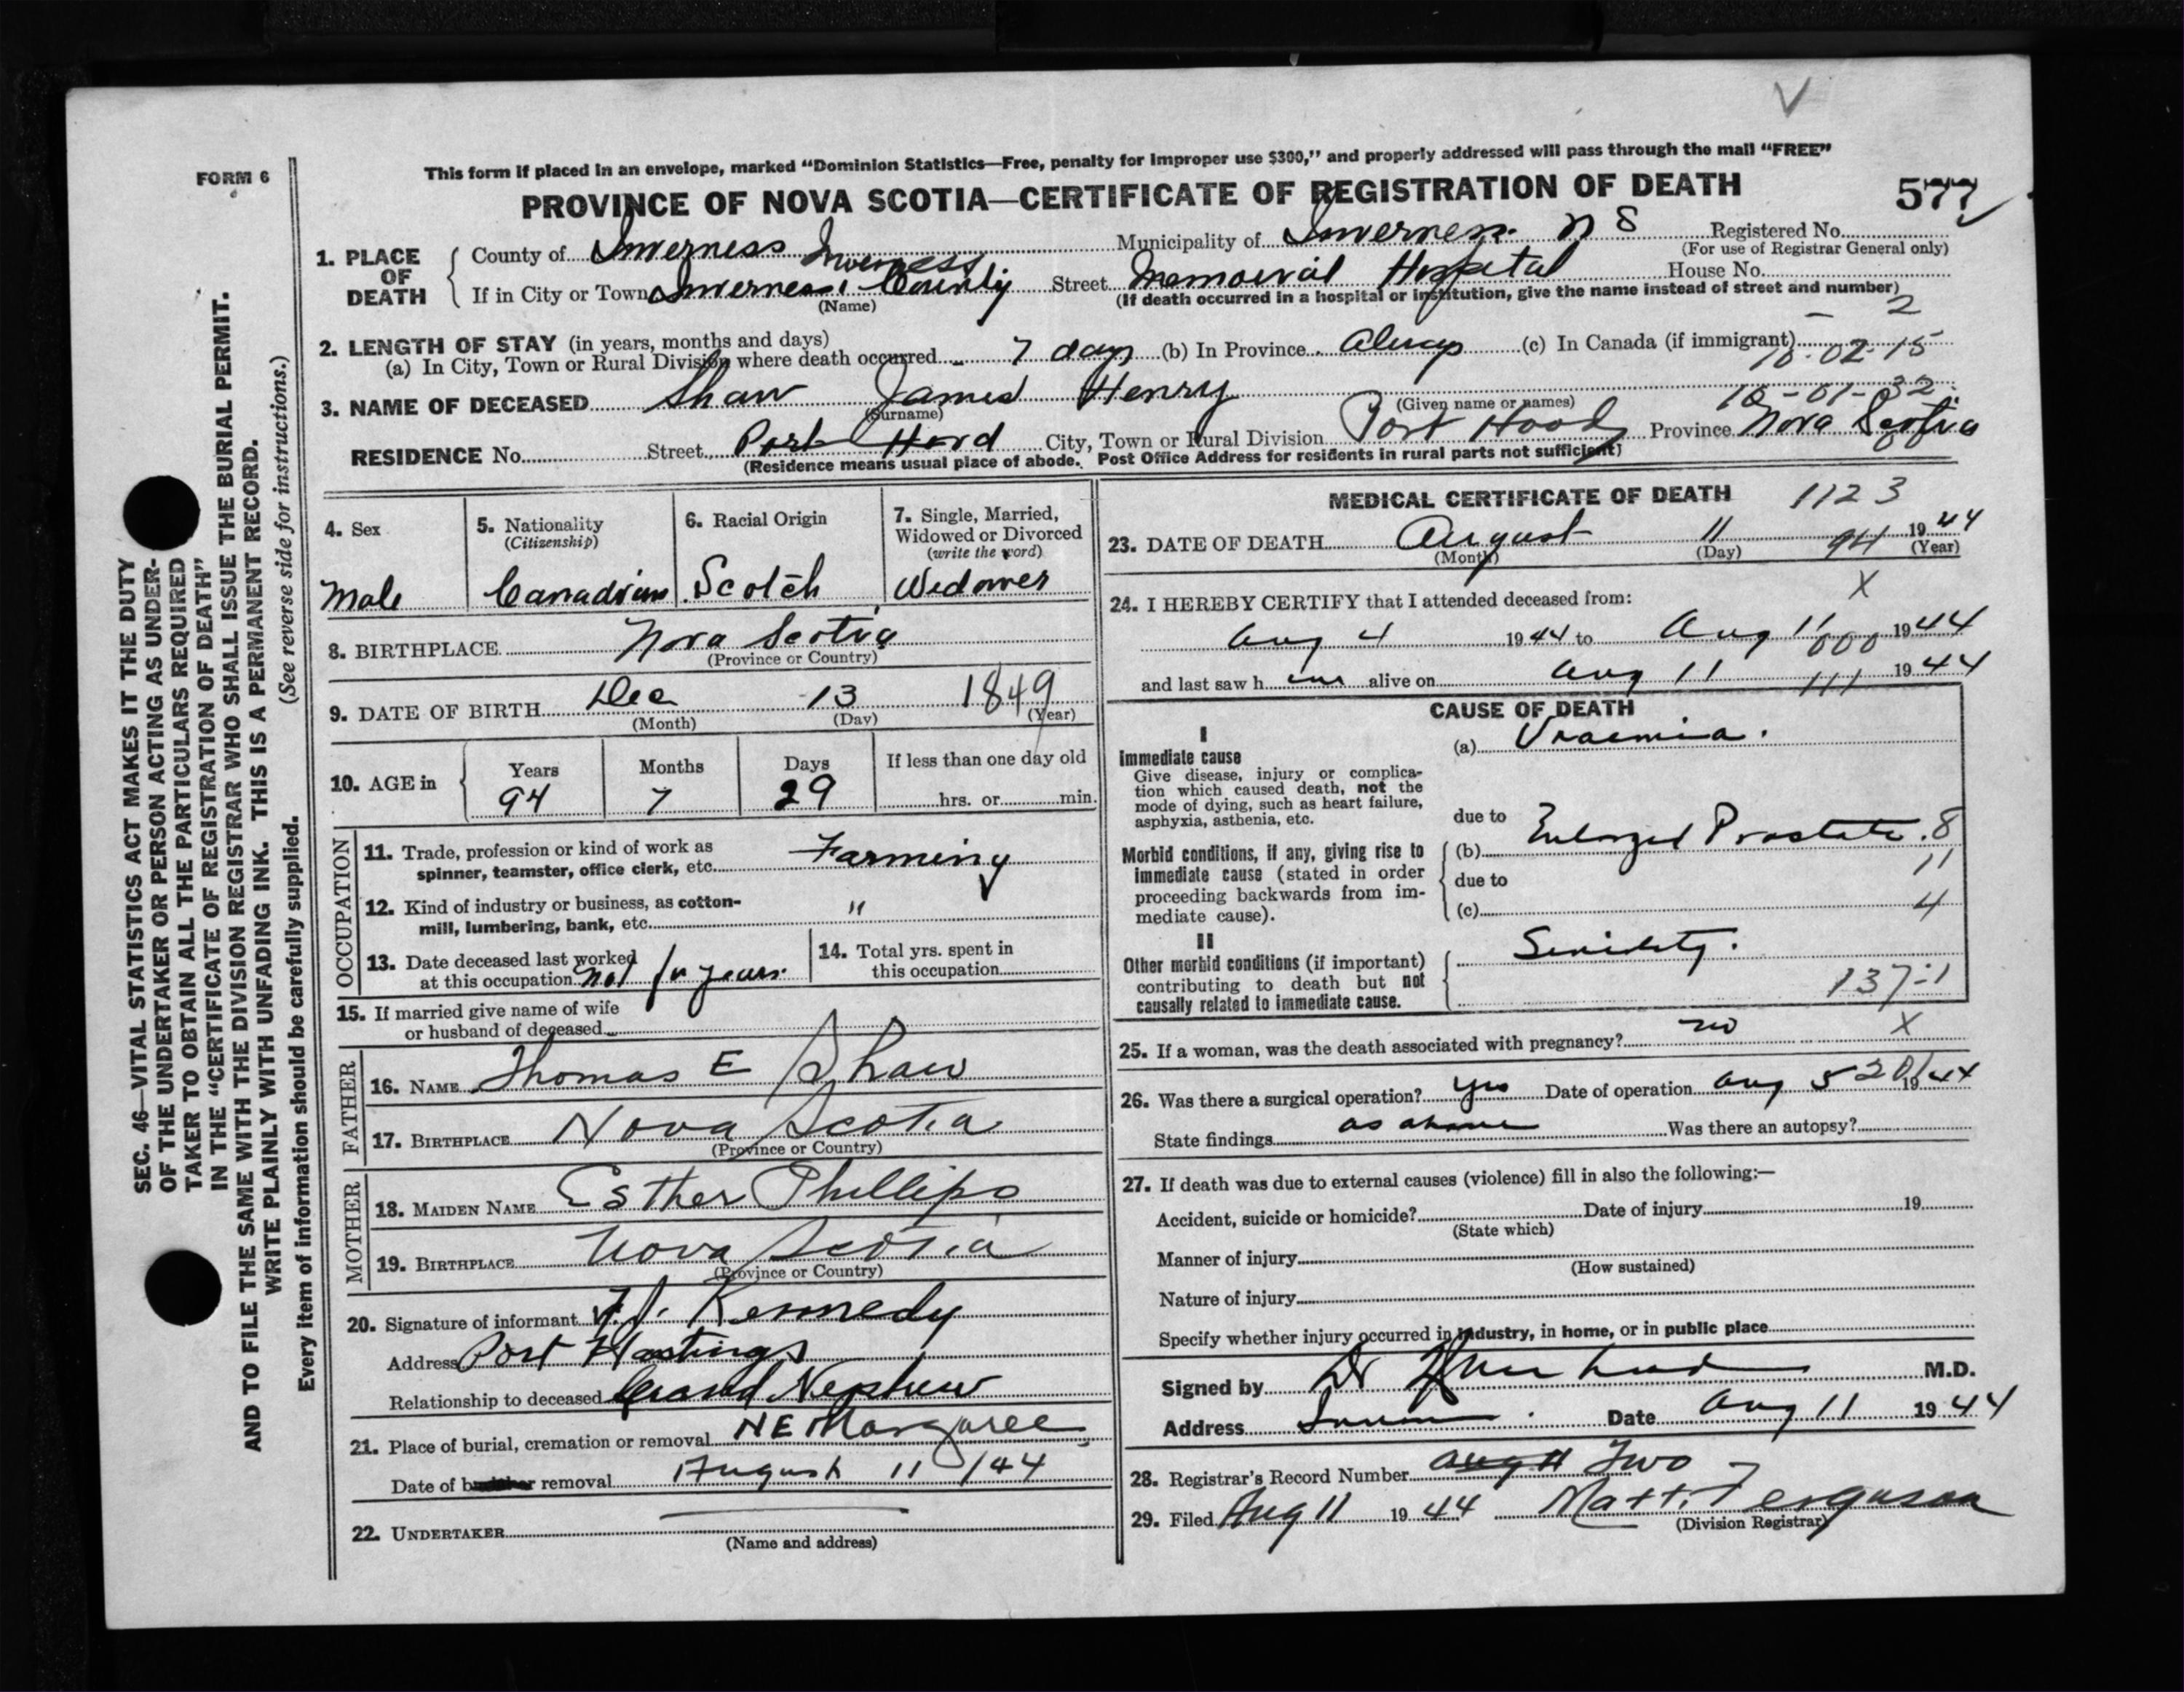 V
FORM 6
This form if placed in an envelope, marked “Dominion Statistics—Free, penalty for improper use $300,” and properly addressed will pass through the mail “FREE”
PROVINCE OF NOVA SCOTIA—CERTIFICATE OF REGISTRATION OF DEATH
577
1. PLACE OF DEATH
County of Inverness Municipality of Inverness N S Registered No.
(For use of Registrar General only)
Inverness
If in City or Town Inverness County Street Memorial Hospital House No.
(Name) (If death occurred in a hospital or institution, give the name instead of street and number)
– 2
2. LENGTH OF STAY (in years, months and days)
(a) In City, Town or Rural Division where death occurred 7 days (b) In Province Always (c) In Canada (if immigrant)
10-02-15
3. NAME OF DECEASED Shaw James Henry
(Surname) (Given name or names)
10-01-32
RESIDENCE No. Street Port Hood City, Town or Rural Division Port Hood Province Nova Scotia
(Residence means usual place of abode. Post Office Address for residents in rural parts not sufficient)
4. Sex
Male
5. Nationality
(Citizenship)
Canadian
6. Racial Origin
Scotch
7. Single, Married, Widowed or Divorced
(write the word)
Widower
8. BIRTHPLACE Nova Scotia
(Province or Country)
9. DATE OF BIRTH Dec 13 1849
(Month) (Day) (Year)
10. AGE in Years Months Days If less than one day old
94 7 29 hrs. or min.
OCCUPATION
11. Trade, profession or kind of work as
spinner, teamster, office clerk, etc. Farming
12. Kind of industry or business, as cotton-
mill, lumbering, bank, etc. "
13. Date deceased last worked
at this occupation not for years.
14. Total yrs. spent in
this occupation
15. If married give name of wife
or husband of deceased
FATHER
16. NAME Thomas E Shaw
17. BIRTHPLACE Nova Scotia
(Province or Country)
MOTHER
18. MAIDEN NAME Esther Phillips
19. BIRTHPLACE Nova Scotia
(Province or Country)
20. Signature of informant J. Kennedy
Address Port Hastings
Relationship to deceased Grand Nephew
21. Place of burial, cremation or removal NE Margaree
Date of removal August 11 /44
22. UNDERTAKER
(Name and address)
MEDICAL CERTIFICATE OF DEATH 1123
23. DATE OF DEATH August 11 1944
(Month) (Day) (Year)
94
X
24. I HEREBY CERTIFY that I attended deceased from:
Aug 4 1944 to Aug 11 1944
000
and last saw h im alive on Aug 11 1944
111
CAUSE OF DEATH
I
Immediate cause
Give disease, injury or complica-
tion which caused death, not the
mode of dying, such as heart failure,
asphyxia, asthenia, etc.
(a) Uraemia.
due to
Morbid conditions, if any, giving rise to
immediate cause (stated in order
proceeding backwards from im-
mediate cause).
(b) Enlarged Prostate. 8
11
due to
(c) 4
II
Other morbid conditions (if important)
contributing to death but not
causally related to immediate cause.
Senility.
137-1
25. If a woman, was the death associated with pregnancy? no X
26. Was there a surgical operation? yes Date of operation Aug 5 1944
20/
State findings as above Was there an autopsy?
27. If death was due to external causes (violence) fill in also the following:—
Accident, suicide or homicide? Date of injury 19
(State which)
Manner of injury
(How sustained)
Nature of injury
Specify whether injury occurred in industry, in home, or in public place
Signed by Dr M.D.
Address Date Aug 11 1944
28. Registrar's Record Number Aug 11 Two
29. Filed Aug 11 1944 Matt. Ferguson
(Division Registrar)
SEC. 46—VITAL STATISTICS ACT MAKES IT THE DUTY
OF THE UNDERTAKER OR PERSON ACTING AS UNDER-
TAKER TO OBTAIN ALL THE PARTICULARS REQUIRED
IN THE “CERTIFICATE OF REGISTRATION OF DEATH”
AND TO FILE THE SAME WITH THE DIVISION REGISTRAR WHO SHALL ISSUE THE BURIAL PERMIT.
WRITE PLAINLY WITH UNFADING INK. THIS IS A PERMANENT RECORD.
Every item of information should be carefully supplied. (See reverse side for instructions.)